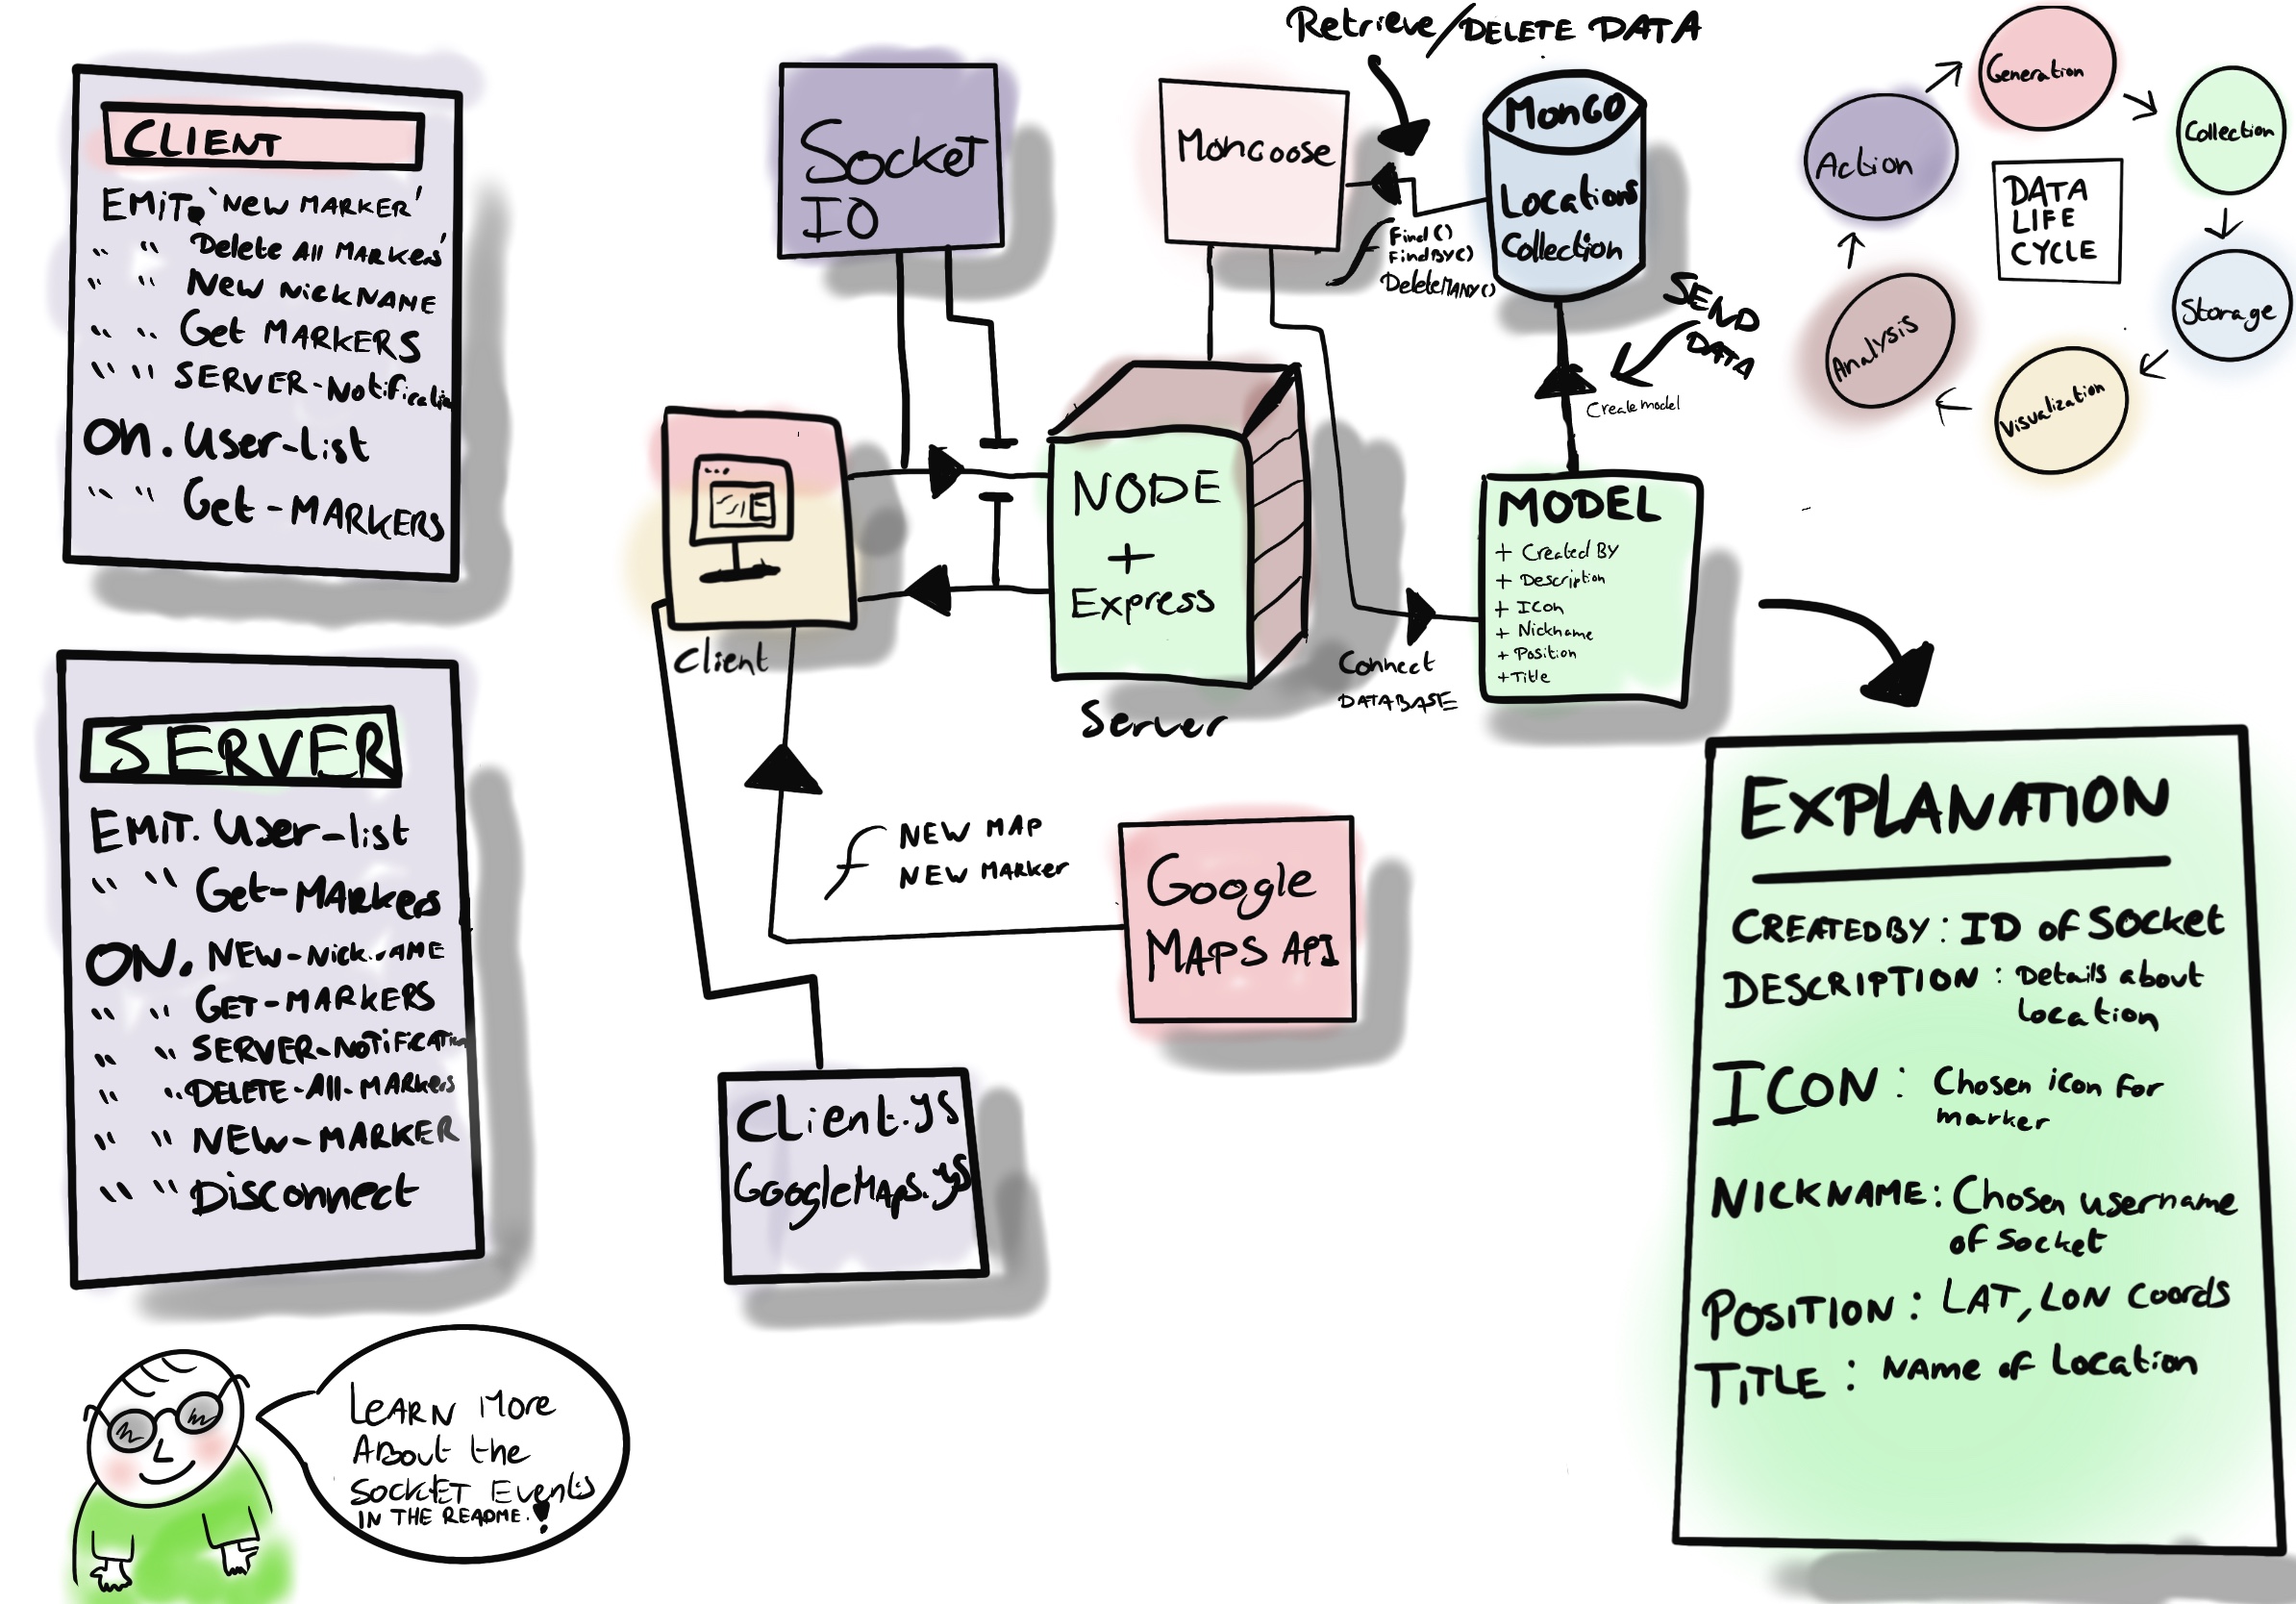 CLIENT
EMIT. 'NEW MARKER'
" " Delete All MARKERS'
" " NEW NICKNAME
" " Get MARKERS
" " SERVER-Notification
ON. User-list
" " Get-MARKERS
SERVER
EMIT. User-list
" " Get-MARKers
ON. NEW-NickNAME
" " GET-MARKERS
" " SERVER-NOTiFiCATiON
" " DELETE-All-MARKers
" " NEW-MARKER
" " Disconnect
LEARN More
About the
SOCKET Events
IN THE README.!
Socket
IO
Mongoose
Retrieve/DELETE DATA
MONGO
Locations
Collection
Find()
FindBY()
DeleteMANY()
SEND
DATA
Create model
Client
NODE
+
Express
Server
Connect
DATABASE
MODEL
+ Created By
+ Description
+ ICon
+ Nickname
+ Position
+ Title
NEW MAP
NEW Marker
Google
MAPS API
Client.js
GoogleMaps.js
Generation
Collection
Storage
Visualization
Analysis
Action
DATA
LIFE
CYCLE
EXPLANATION
CREATEDBY: ID of Socket
DESCRIPTION: Details about
Location
ICON: Chosen icon for
marker
NICKNAME: Chosen username
of Socket
POSITION: LAT, LON Coords
TITLE: NAME of Location